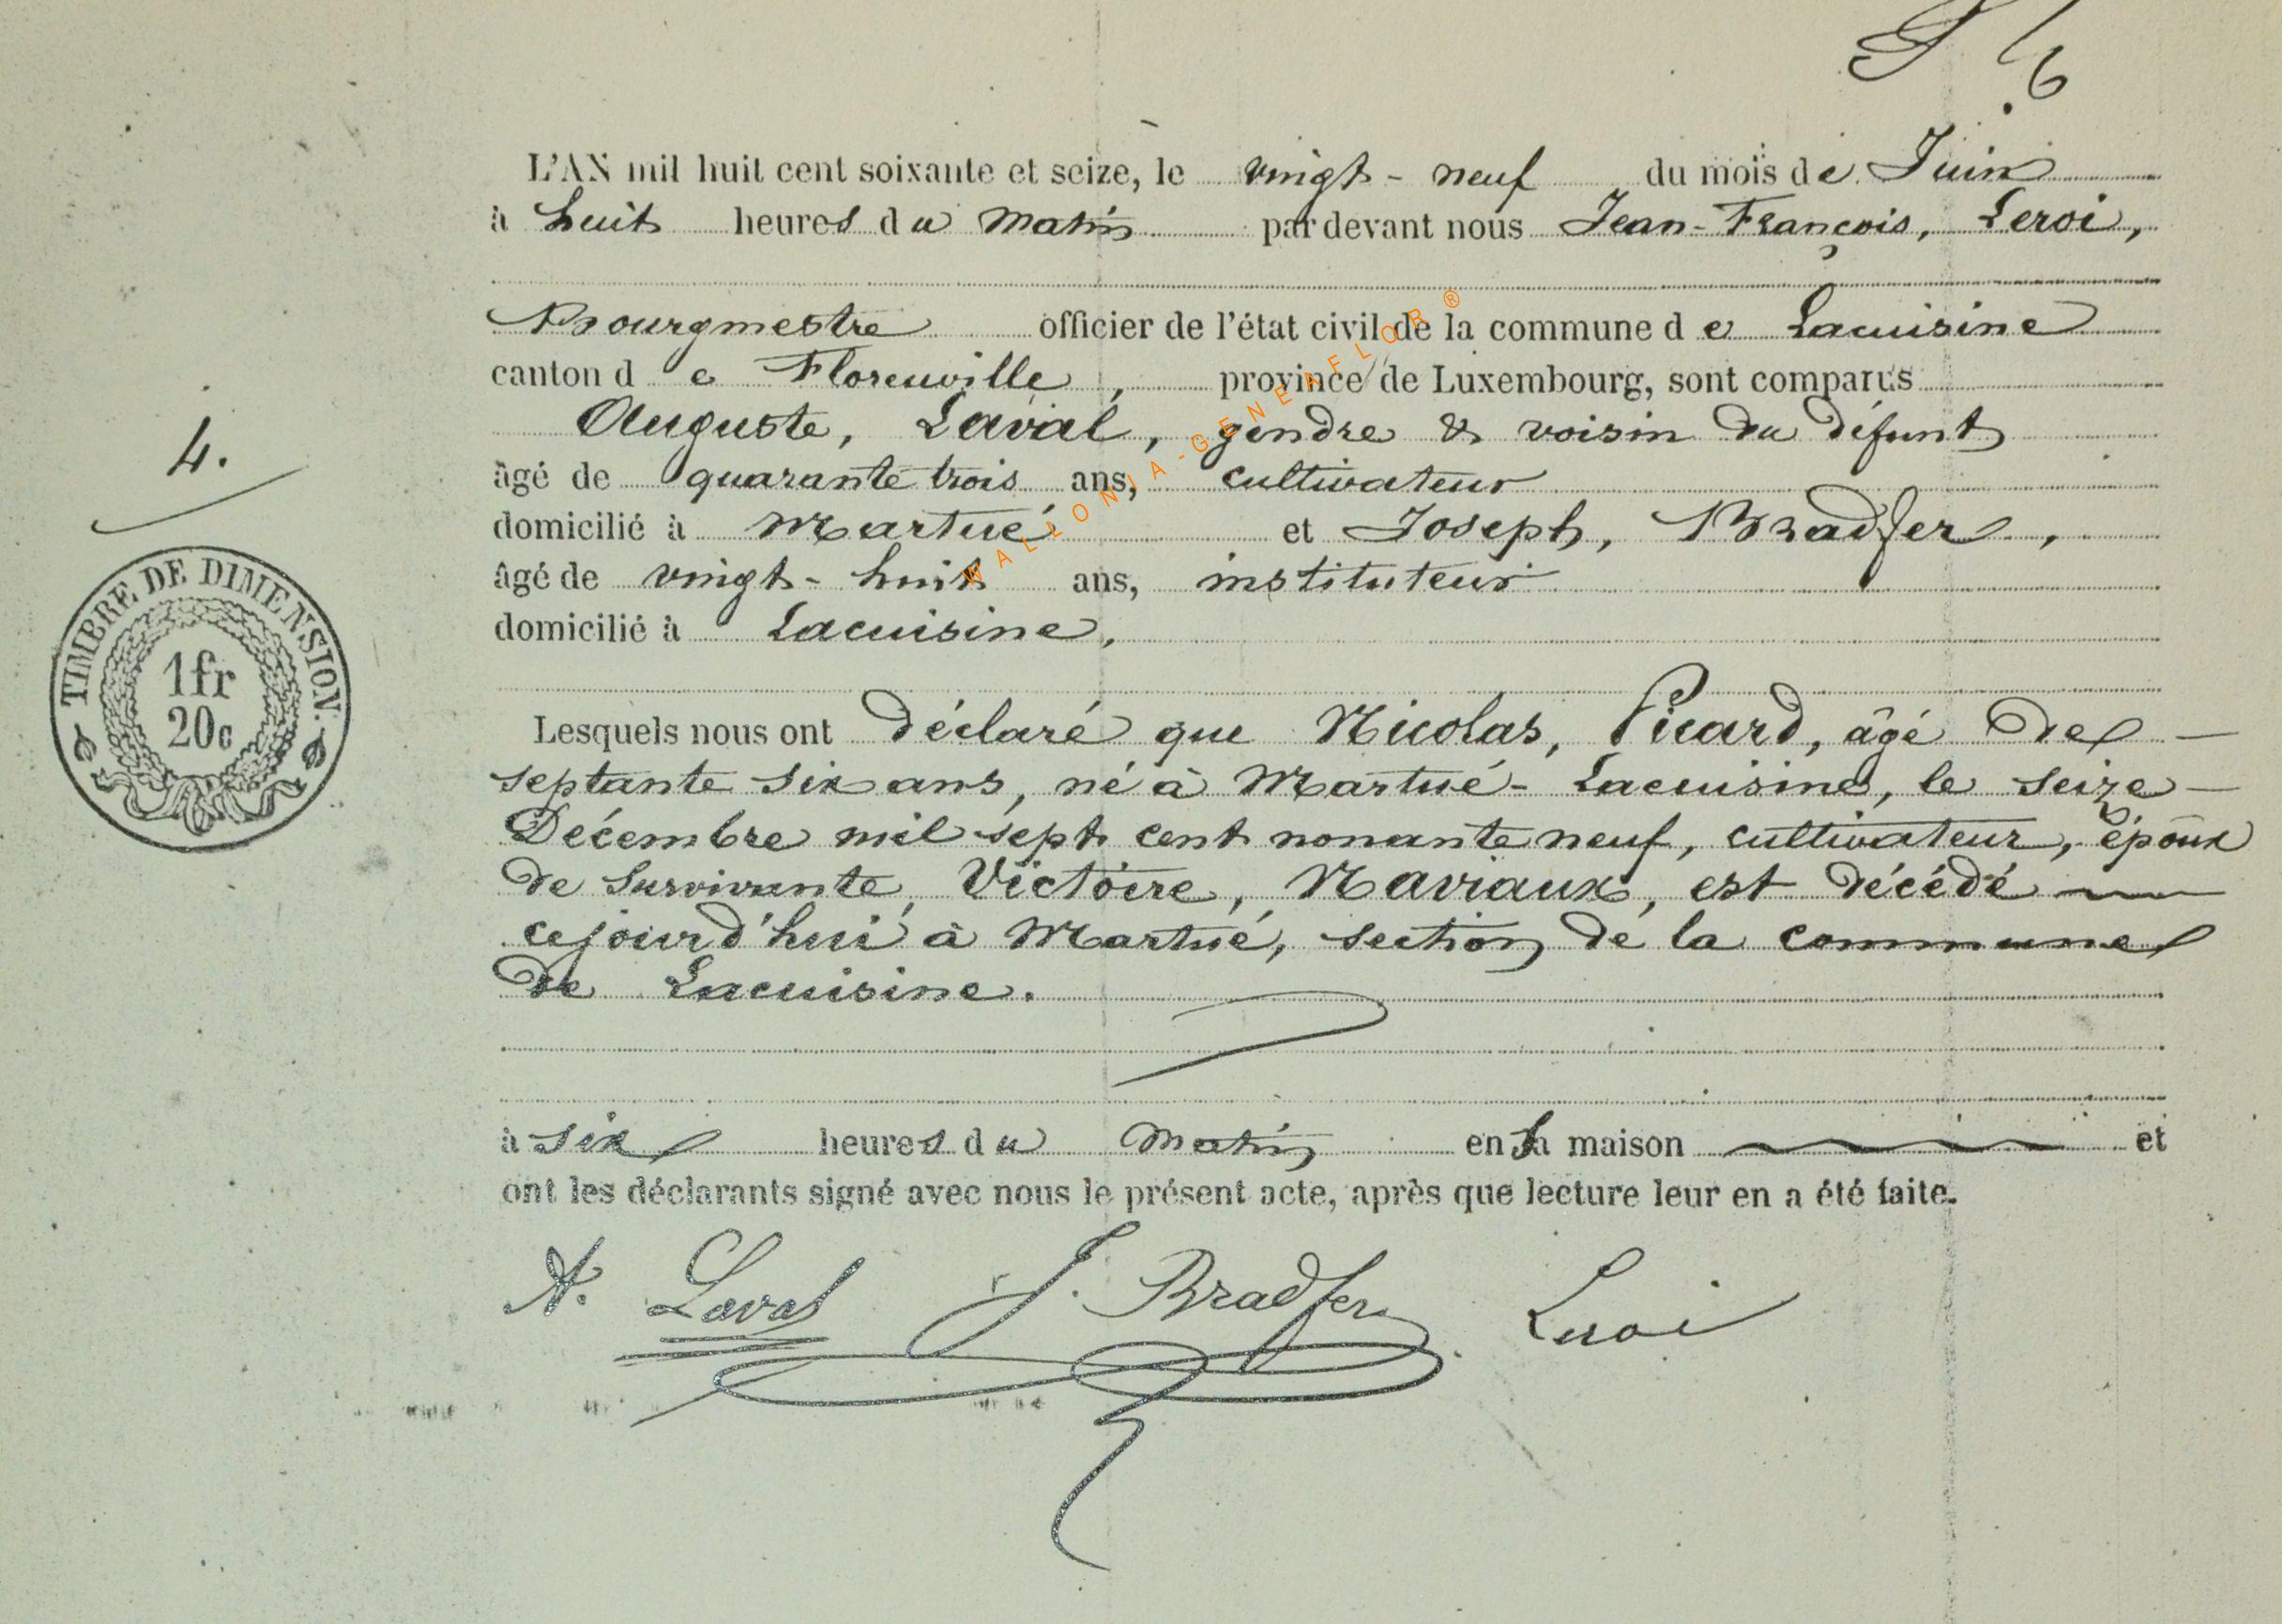 L'AN mil huit cent soixante et seize, le vingt - neuf du mois de Juin
à huit heures du matin par devant nous Jean-François, Leroi,
Bourgmestre officier de l'état civil de la commune de Lacuisine
canton de Florenville, province de Luxembourg, sont comparus
Auguste, Laval, gendre & voisin du défunt
âgé de quarante trois ans, cultivateur
domicilié à Martué et Joseph, Bradfer,
âgé de vingt-huit ans, instituteur
domicilié à Lacuisine,
4.
TIMBRE DE DIMENSION.
1fr
20c
Lesquels nous ont déclaré que Nicolas, Picard, âgé de —
septante six ans, né à Martué-Lacuisine, le seize —
Décembre mil sept cent nonante neuf, cultivateur, époux
de survivante, Victoire, Naviaux, est décédé —
cejourd'hui à Martué, section de la commune
de Lacuisine.
à six heures du matin en sa maison — et
ont les déclarants signé avec nous le présent acte, après que lecture leur en a été faite.
A. Laval J. Bradfer Leroi
WALLONIA-GENEAFLOR ®